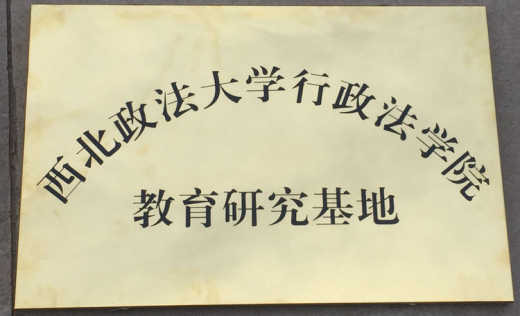 西北政法大学行政法学院
教育研究基地